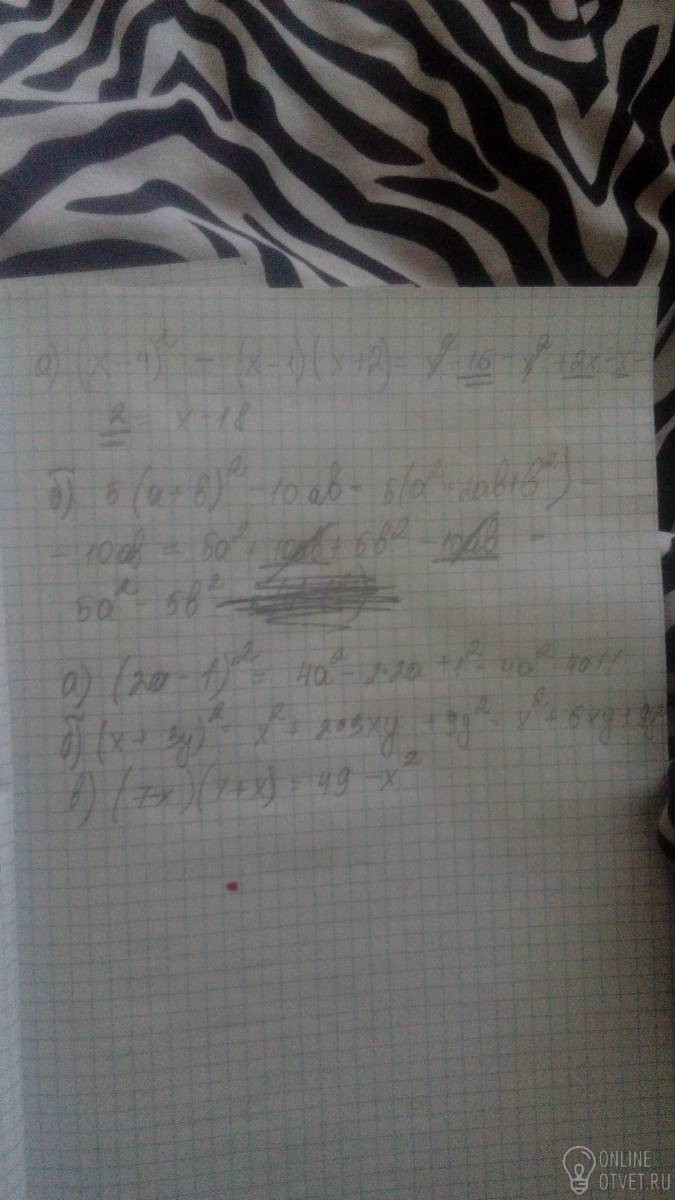 а) (x-4)² - (x-1)(x+2) = x² - 16 - x² + 2x - x -
2 = x - 18
б) 5(a+b)² - 10ab = 5(a²+2ab+b²) -
- 10ab = 5a² + 10ab + 5b² - 10ab =
5a² - 5b²
а) (2a - 1)² = 4a² - 2·2a + 1² = 4a² - 4a+1
б) (x + 3y)² = x² + 2·3xy + 9y² = x² + 6xy + 9y²
в) (7-x)(7+x) = 49 - x²
ONLINE
OTVET.RU